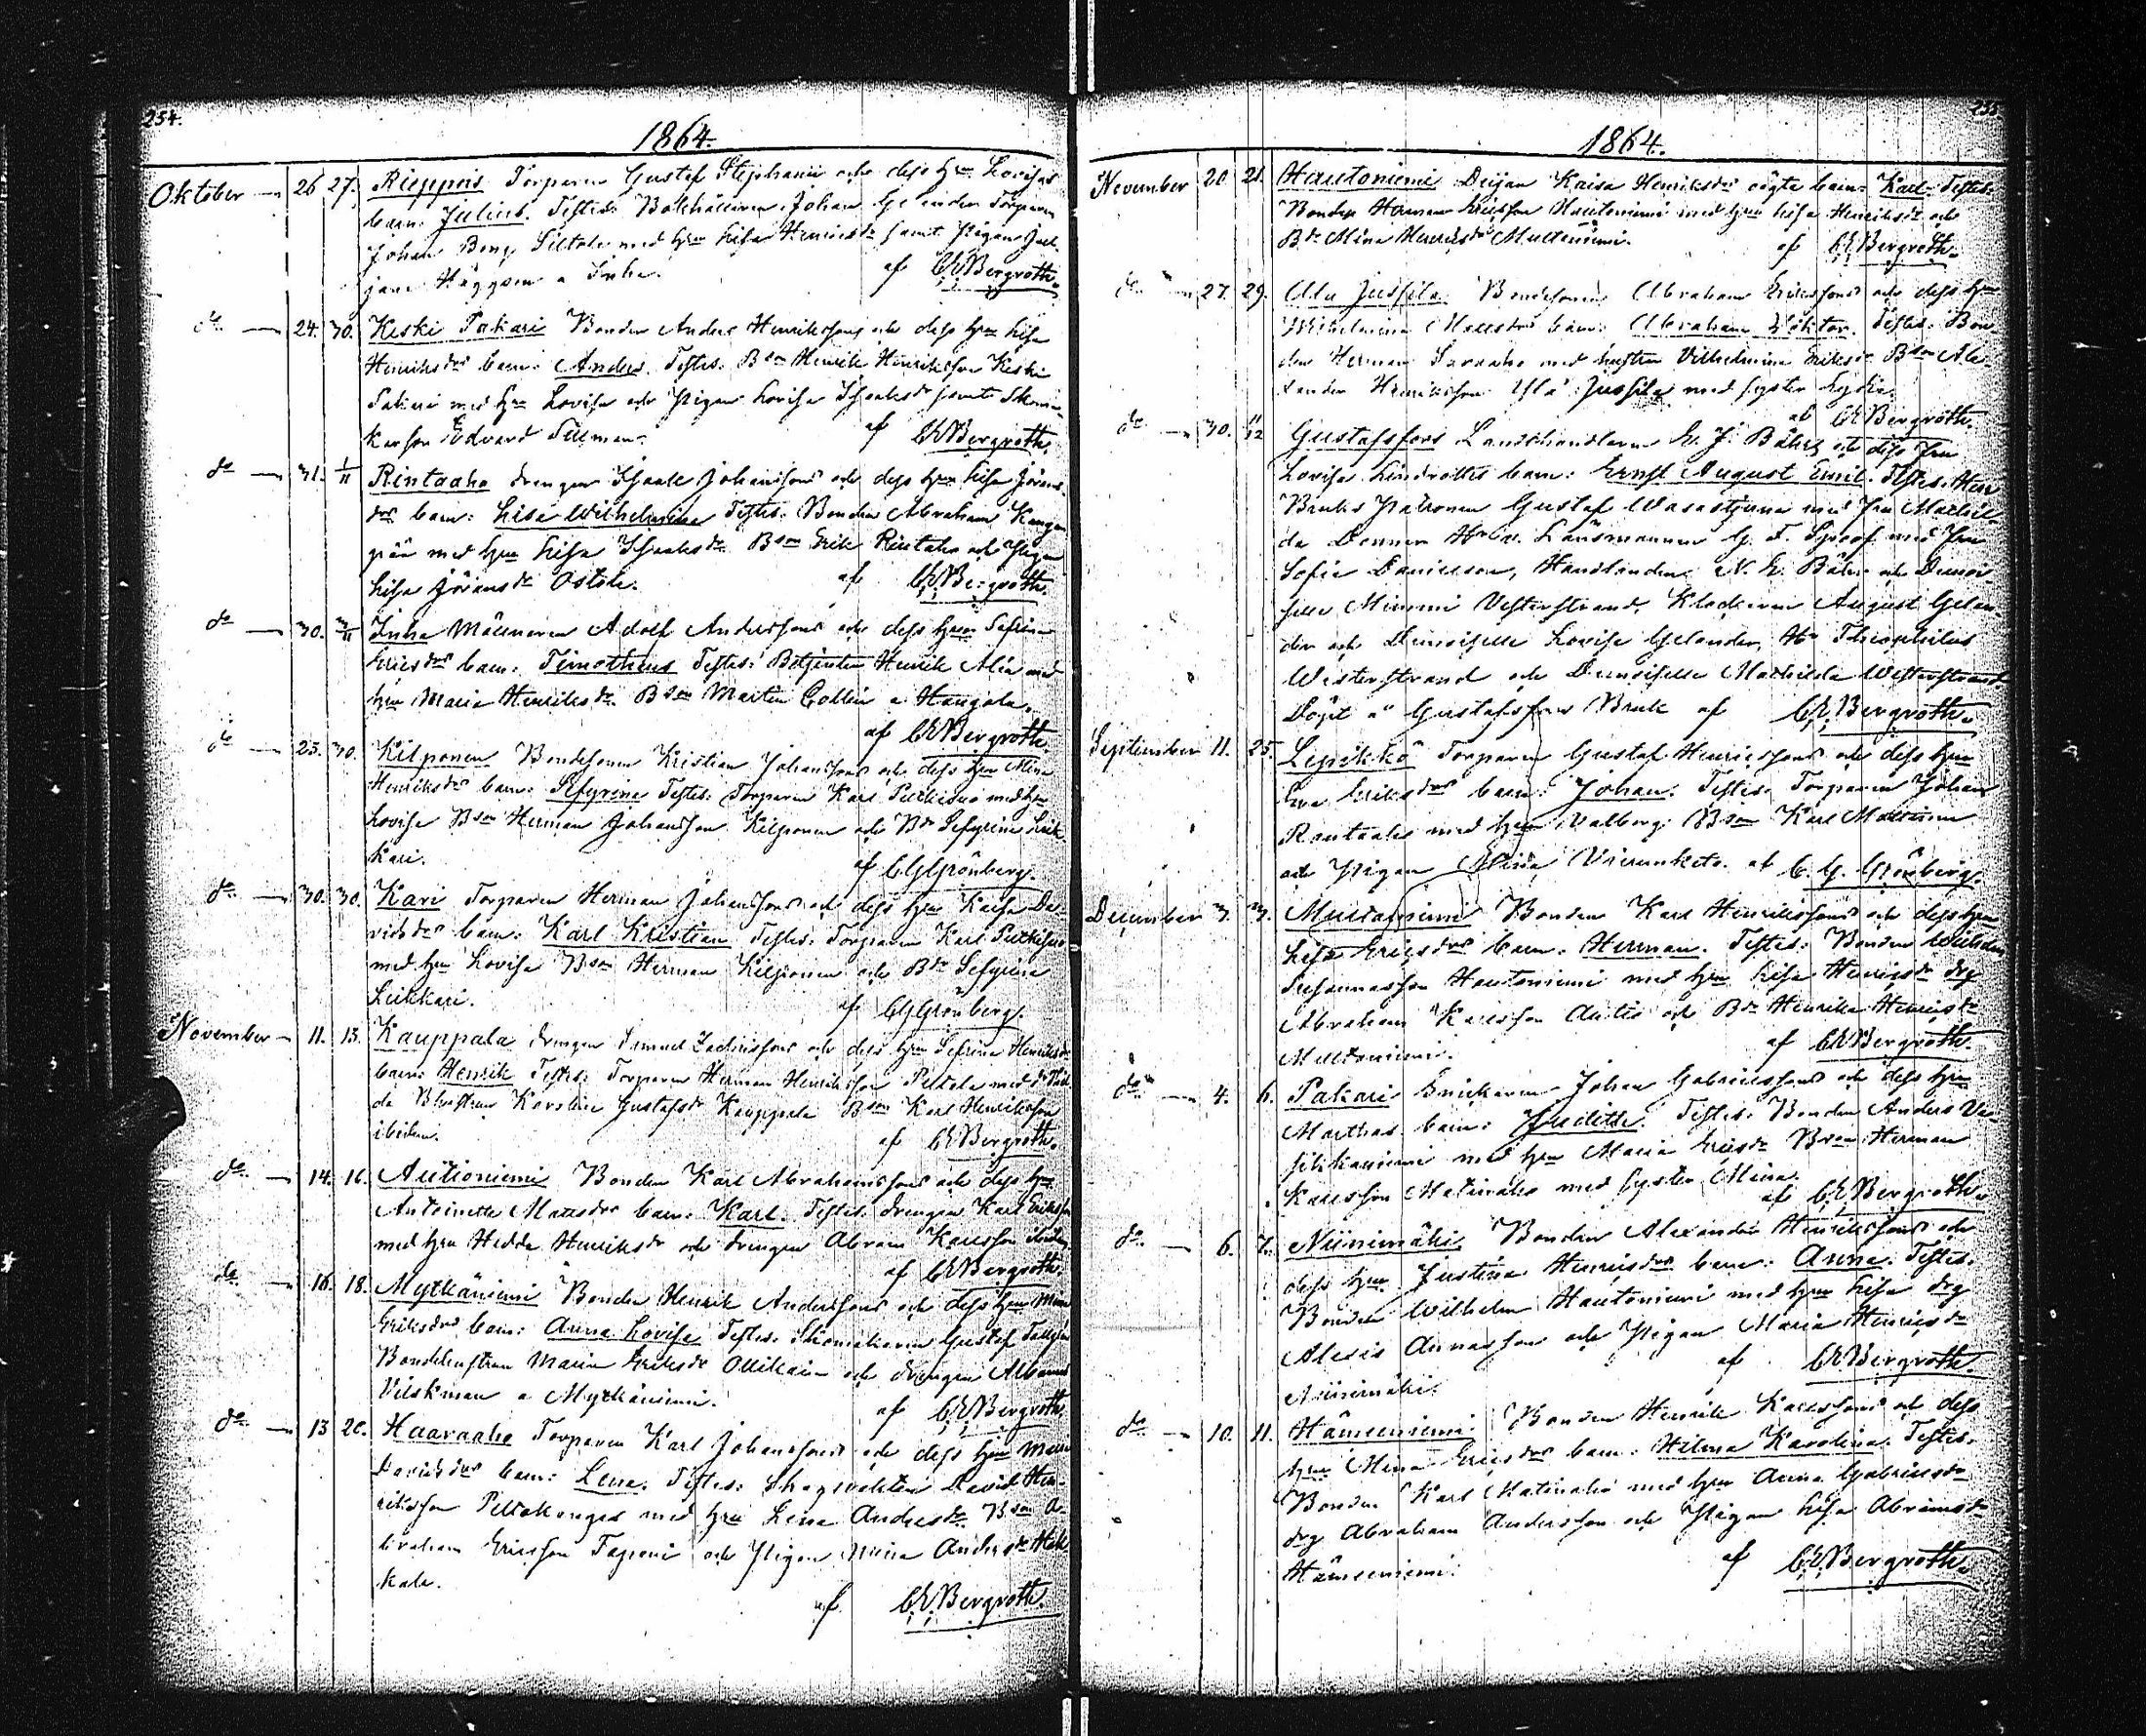 254.
1864.
Oktober — 26 27. Rieppois Torparen Gustaf Stephanii och dess hru Lovisas
barn: Julius. Testes: Johan Torparen
Johan Beng Siltala med hru Lisa Henriksdr samt Pigan Jul-
jana Häggqvi a Inha. af CEBergroth.
do — 24. 30. Keski Pakari Bonden Anders Henrikssons och dess hru Lisa
Henriksdrs barn: Anders. Testes: Bson Henrik Henriksson Keski
Pakari med hru Lovisa och Pigan Lovisa Isaaksdr samt Skoma-
karson Edvard Tillman. af CEBergroth.
do — 31. 1/11 Rintaaho drengen Isaak Johanssons och dess hru Lisa Jörans-
drs barn: Lisa Wilhelmina Testes: Bonden Abraham Kangas-
pää med hru Lisa Isaaksdr Bson Erik Rintaho och Pigan
Lisa Jöransdr Ostola. af CEBergroth.
do — 30. 3/11 Inha Mälmaren Adolf Anderssons och dess hru Sefrina
Ericsdrs barn: Timotheus Testes: Betjenten Henrik Alin med
hru Maria Henriksdr Bson Martin Collin a Hangola.
af CEBergroth.
do — 23. 30. Kilponen Bondesonen Kristian Johanssons och dess hru Mina
Henriksdrs barn: Sefyrina Testes: Torparen Karl Purkisuo med hru
Lovisa Bson Herman Johansson Kilponen och Bdr Sefyrina Leik-
kari. af CGGrönberg.
do — 30. 30. Kari Torparen Herman Johanssons och dess hru Kaisa Da-
vidsdrs barn: Karl Kristian Testes: Torparen Karl Purkisuo
med hru Lovisa Bson Herman Kilponen och Bdr Sefyrina
Leikkari. af CGGrönberg.
November — 11. 13. Kauppala drengen Samuel Zachrissons och dess hru Sefrina Henriksdrs
barn: Henrik Testes: Torparen Herman Henriksson Peltola med
Karolina Gustafsdr Kauppala Bson Karl Henriksson
ibidem. af CEBergroth.
do — 14. 16. Autioniemi Bonden Karl Abrahamssons och dess hru
Antoinetta Matsdrs barn: Karl. Testes: drengen Karl Eriksson
med hru Hedda Henriksdr och drengen Abram Karlsson ibidem
af CEBergroth.
do — 16. 18. Myllyniemi Bonden Henrik Anderssons och dess hru Maria
Eriksdrs barn: Anna Lovisa Testes: Skomakaren Gustaf
Bondehustrun Maria Eriksdr Ollikain och drengen Albanus
Vilskman a Myllyniemi. af CEBergroth.
do — 13 20. Haaraaho Torparen Karl Johanssons och dess hru Maria
Davidsdrs barn: Lena. Testes: Skogvaktaren David Hen-
riksson Peltokangas med hru Lena Andersdr Bson A-
braham Ericsson Taponi och Pigan Maria Andersdr Hak-
kala.
af CEBergroth.
255
1864.
November 20. 21. Hautoniemi Deijan Kaisa Henriksdrs oägta barn: Karl. Testes:
Bonden Herman Ericsson Hautoniemi med hru Lisa Henriksdr och
Bdr Mina Henriksdr Multaniemi. af CEBergroth.
do — 27. 29. Ala Jussila. Bondesonen Abraham Erikssons och dess hru
Wilhelmina Matsdrs barn: Abraham Viktor. Testes: Bon-
den Herman Saraaho med hustru Vilhelmina Eriksdr Bson Ale-
xander Henriksson Ylä Jussila med syster Lydia.
af CEBergroth.
do — 30. 11/12 Gustafsfors Landthandlaren E. J. Bährs och dess Fru
Lovisa Lindroths barn: Ernst August Emil. Testes: Herr
Bruks Patronen Gustaf Wasastjerna med Fru Mathil-
da Donner Länsmannen G. F. med Fru
Sofia Danielson, Handlanden N. E. Bähr och Demoi-
selle Mimmi Vesterstrand, Klockaren August Gelan-
der och Demoiselle Lovisa Gelander, Hr Theophilus
Westerstrand och Demoiselle Mathilda Westerstrand
Döpt å Gustafsfors Bruk af CEBergroth.
September 11. 25. Lepikkö Torparen Gustaf Henrikssons och dess hru
Eva Eriksdrs barn: Johan. Testes: Torparen Johan
Rantaaho med hru Valborg Bson Karl
och Pigan Mina Vierunketo. af C. G. Grönberg.
December 3. 3. Multaniemi Bonden Karl Henrikssons och dess hru
Lisa Ericsdrs barn: Herman. Testes: Bonden Wilhelm
Johannesson Hautoniemi med hru Lisa Henriksdr drg
Abraham Karlsson Autio och Bdr Henrika Henriksdr
Multaniemi. af CEBergroth.
do — 4. 6. Pakari Snickaren Johan Gabrielssons och dess hru
Marthas barn: Judith. Testes: Bonden Anders Ve-
sikkaniemi med hru Maria Ericsdr Bson Herman
Karlsson Matinaho med syster Mina.
af CEBergroth.
do — 6. 7. Niinimäki Bonden Alexander Henrikssons och
dess hru Justina Henriksdrs barn: Anna. Testes:
Bonden Wilhelm Hautoniemi med hru Lisa drg
Alexis Annasson och Pigan Maria Henriksdr
Niinimäki. af CEBergroth.
do — 10. 11. Hämeeniemi Bonden Henrik Karlssons och dess
hru Mina Ericsdrs barn: Hilma Karolina. Testes:
Bonden Karl Matinaho med hru Anna Gabrielsdr
drg Abraham Andersson och Pigan Lisa Abramsdr
Hämeeniemi. af CEBergroth.